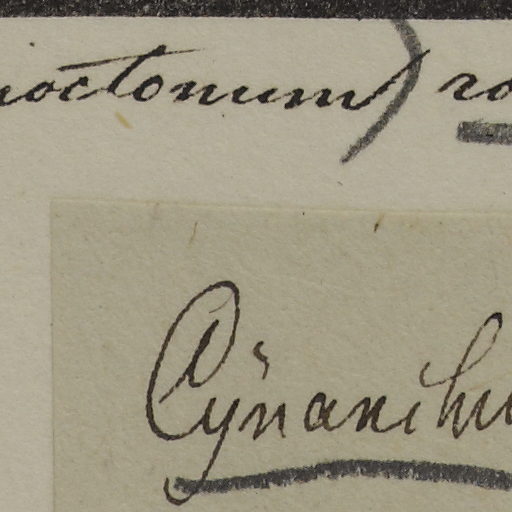 noctonum) ro
Cynanchu